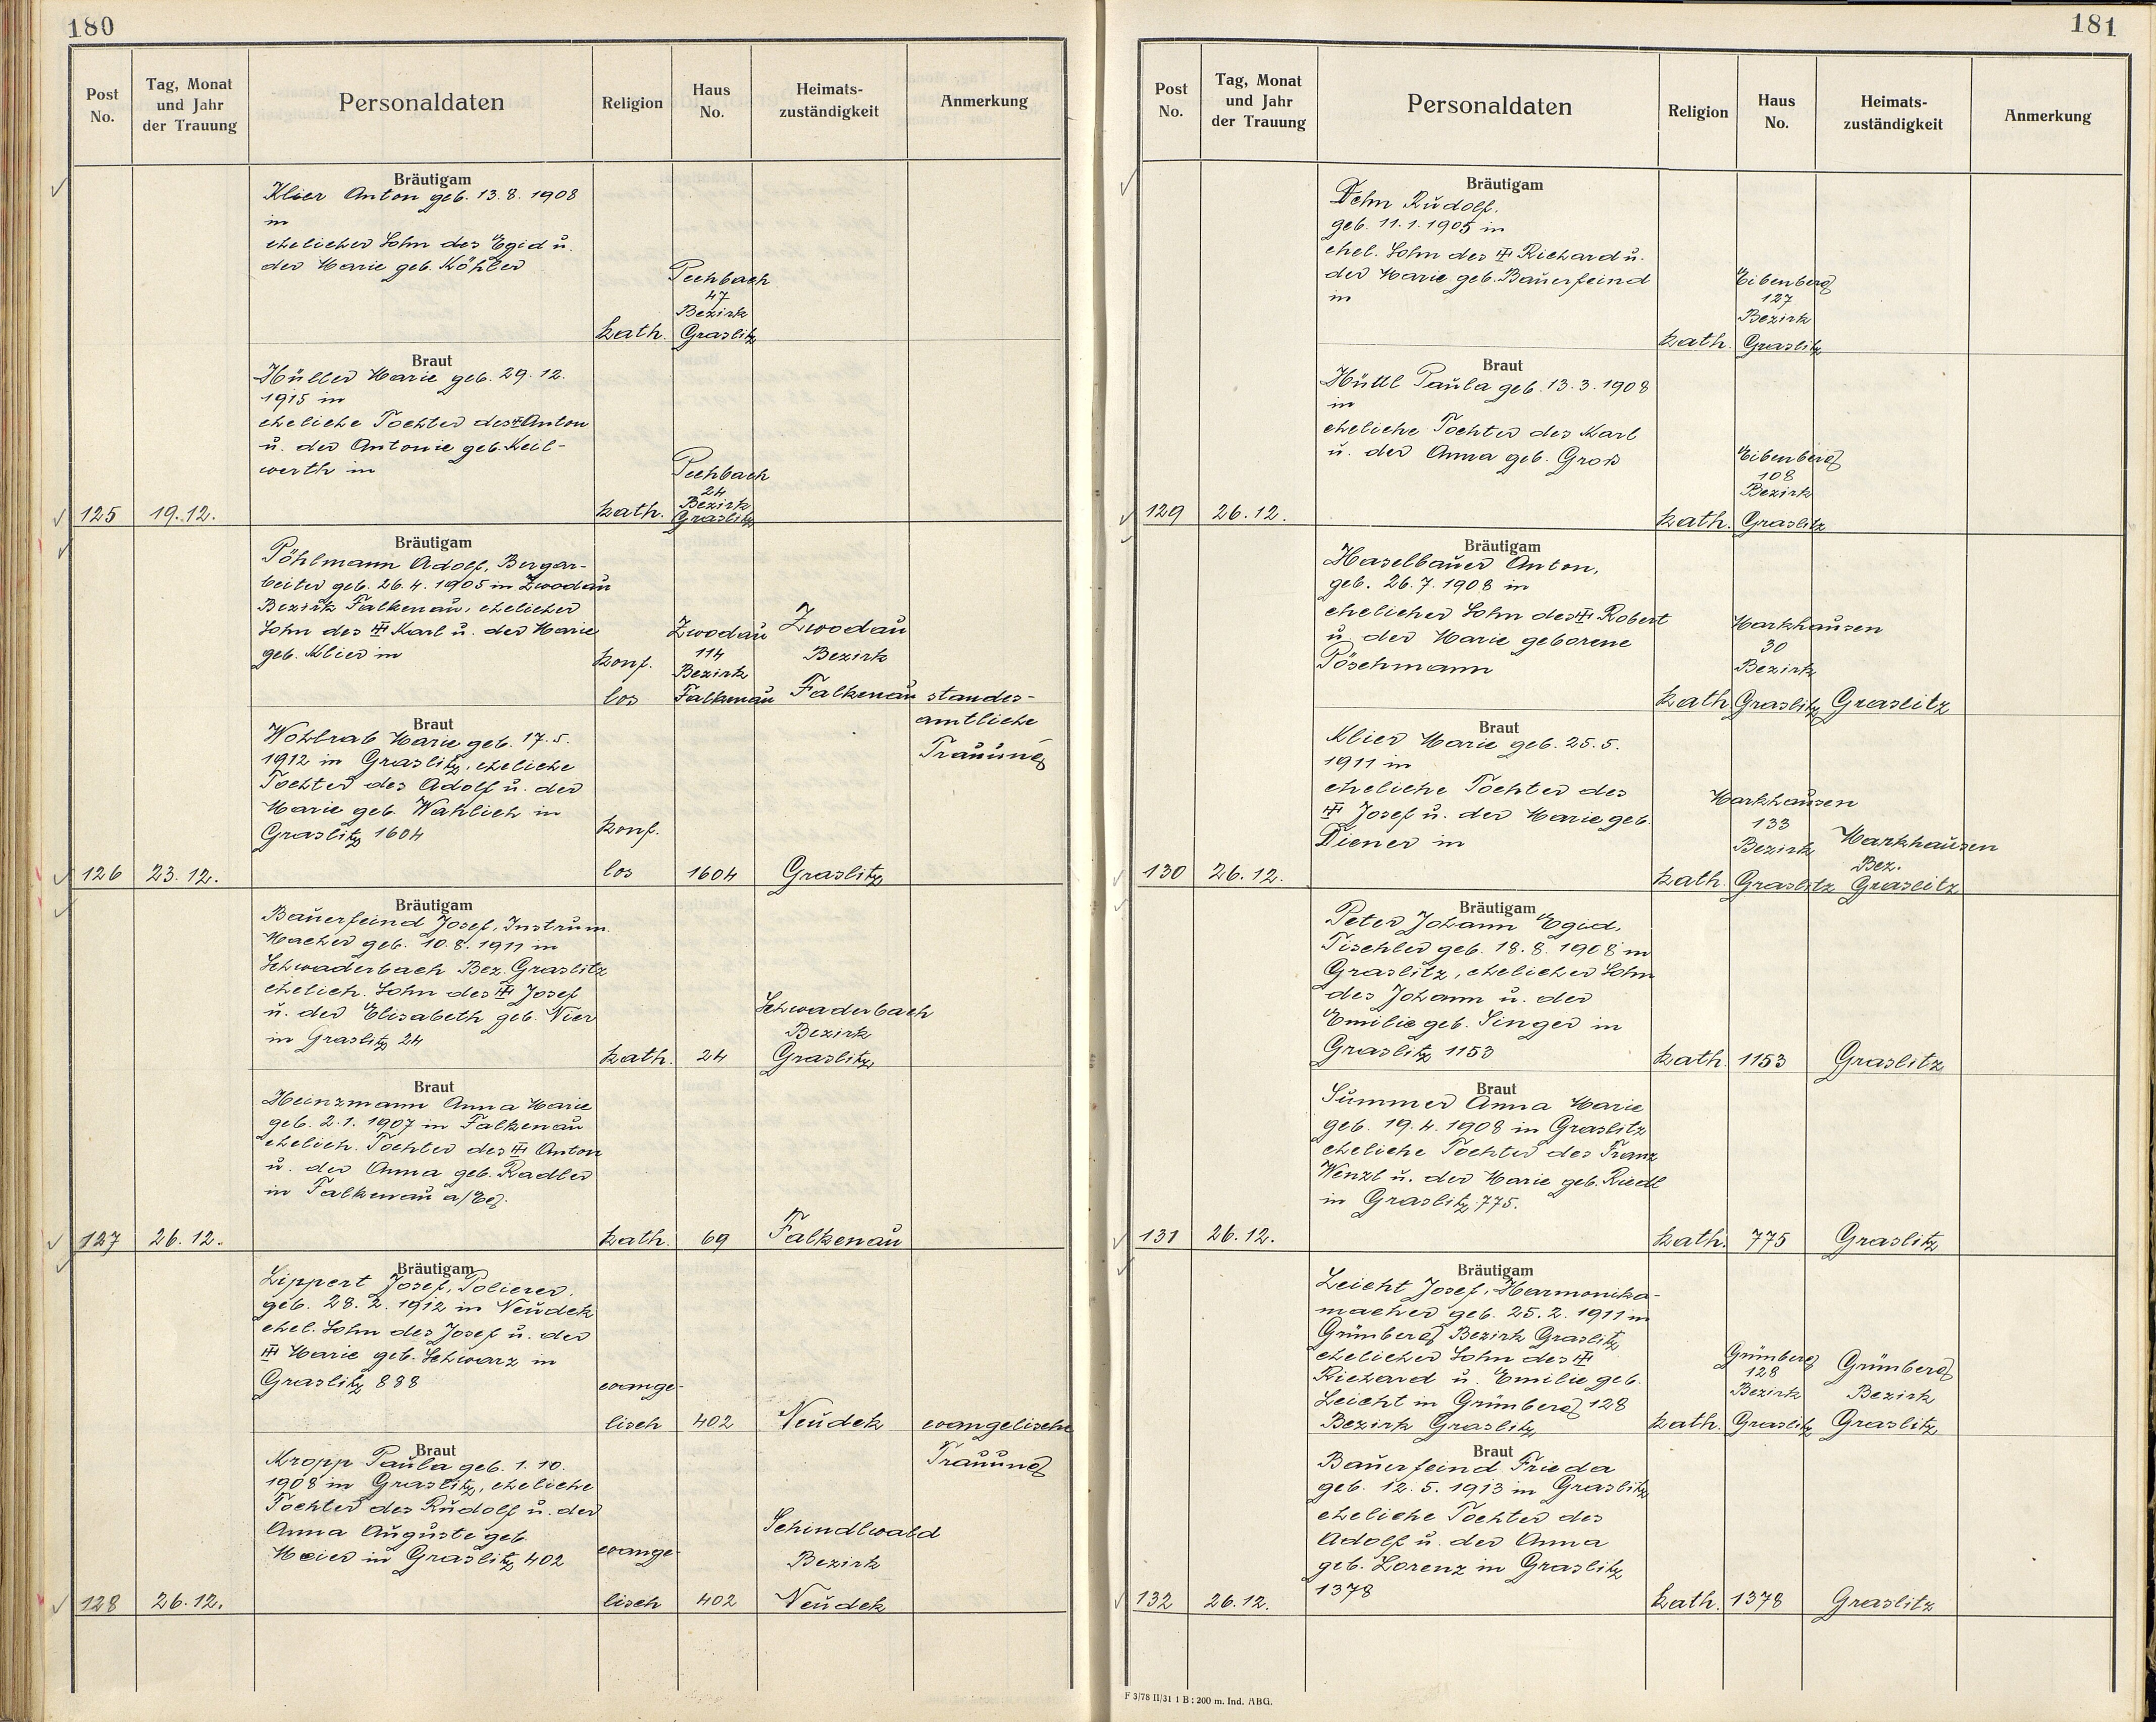 180
Post No.
Tag, Monat und Jahr der Trauung
Personaldaten
Religion
Haus No.
Heimats-zuständigkeit
Anmerkung
Bräutigam
Klier Anton geb. 13. 8. 1908
in
ehelicher Sohn des Egid u.
der Marie geb. Köhler
Pechbach
47
Bezirk
kath. Graslitz
Braut
Hüller Marie geb. 29. 12.
1915 in
eheliche Tochter des Anton
u. der Antonie geb. Keil-
werth in
Pechbach
24
Bezirk
125 19. 12. kath. Graslitz
Bräutigam
Pöhlmann Adolf, Bergar-
beiter geb. 26. 4. 1905 in Zwodau
Bezirk Falkenau, ehelicher
Sohn des Karl u. der Marie
geb. Klier in
konf.
los
Zwodau
114
Bezirk
Falkenau
Zwodau
Bezirk
Falkenau
standes-
amtliche
Trauung
Braut
Wohlrab Marie geb. 17. 5.
1912 in Graslitz, eheliche
Tochter des Adolf u. der
Marie geb. Wahlich in
Graslitz 1604
konf.
126 23. 12. los 1604 Graslitz
Bräutigam
Bauerfeind Josef, Instrum.
Macher geb. 10. 8. 1911 in
Schwaderbach Bez. Graslitz
ehelich. Sohn des Josef
u. der Elisabeth geb. Nier
in Graslitz 24
Schwaderbach
Bezirk
kath. 24 Graslitz
Braut
Heinzmann Anna Marie
geb. 2. 1. 1907 in Falkenau
ehelich. Tochter des Anton
u. der Anna geb. Radler
in Falkenau a/Eg.
127 26. 12. kath. 69 Falkenau
Bräutigam
Lippert Josef, Polierer.
geb. 28. 2. 1912 in Neudek
ehel. Sohn des Josef u. der
Marie geb. Schwarz in
Graslitz 888
evange-
lisch 402 Neudek evangelische
Trauung
Braut
Kropp Paula geb. 1. 10.
1908 in Graslitz, eheliche
Tochter des Rudolf u. der
Anna Auguste geb.
Meier in Graslitz 402
evange-
Schindlwald
Bezirk
128 26. 12. lisch 402 Neudek
181
Post No.
Tag, Monat und Jahr der Trauung
Personaldaten
Religion
Haus No.
Heimats-zuständigkeit
Anmerkung
Bräutigam
Dehn Rudolf.
geb. 11. 1. 1905 in
ehel. Sohn des Richard u.
der Marie geb. Bauerfeind
in
Eibenberg
127
Bezirk
kath. Graslitz
Braut
Hüttl Paula geb. 13. 3. 1908
in
eheliche Tochter des Karl
u. der Anna geb. Groß
Eibenberg
108
Bezirk
129 26. 12. kath. Graslitz
Bräutigam
Haselbauer Anton,
geb. 26. 7. 1908 in
ehelicher Sohn des Robert
u. der Marie geborene
Pöschmann
Markhausen
30
Bezirk
kath. Graslitz Graslitz
Braut
Klier Marie geb. 25. 5.
1911 in
eheliche Tochter des
Josef u. der Marie geb.
Diener in
Markhausen
133
Bezirk
Markhausen
Bez.
130 26. 12. kath. Graslitz Graslitz
Bräutigam
Peter Johann Egid,
Tischler geb. 18. 8. 1908 in
Graslitz, ehelicher Sohn
des Johann u. der
Emilie geb. Singer in
Graslitz 1153
kath. 1153 Graslitz
Braut
Summer Anna Marie
geb. 19. 4. 1908 in Graslitz
eheliche Tochter des Franz
Wenzl u. der Marie geb. Riedl
in Graslitz 775.
131 26. 12. kath. 775 Graslitz
Bräutigam
Leicht Josef, Harmonika-
macher geb. 25. 2. 1911 in
Grünberg Bezirk Graslitz
ehelicher Sohn des
Richard u. Emilie geb.
Leicht in Grünberg 128
Bezirk Graslitz
Grünberg
128
Bezirk
Grünberg
Bezirk
kath. Graslitz Graslitz
Braut
Bauerfeind Frieda
geb. 12. 5. 1913 in Graslitz
eheliche Tochter des
Adolf u. der Anna
geb. Lorenz in Graslitz
1378
132 26. 12. kath. 1378 Graslitz
F 3/78 II/31 1 B : 200 m. Ind. ABG.